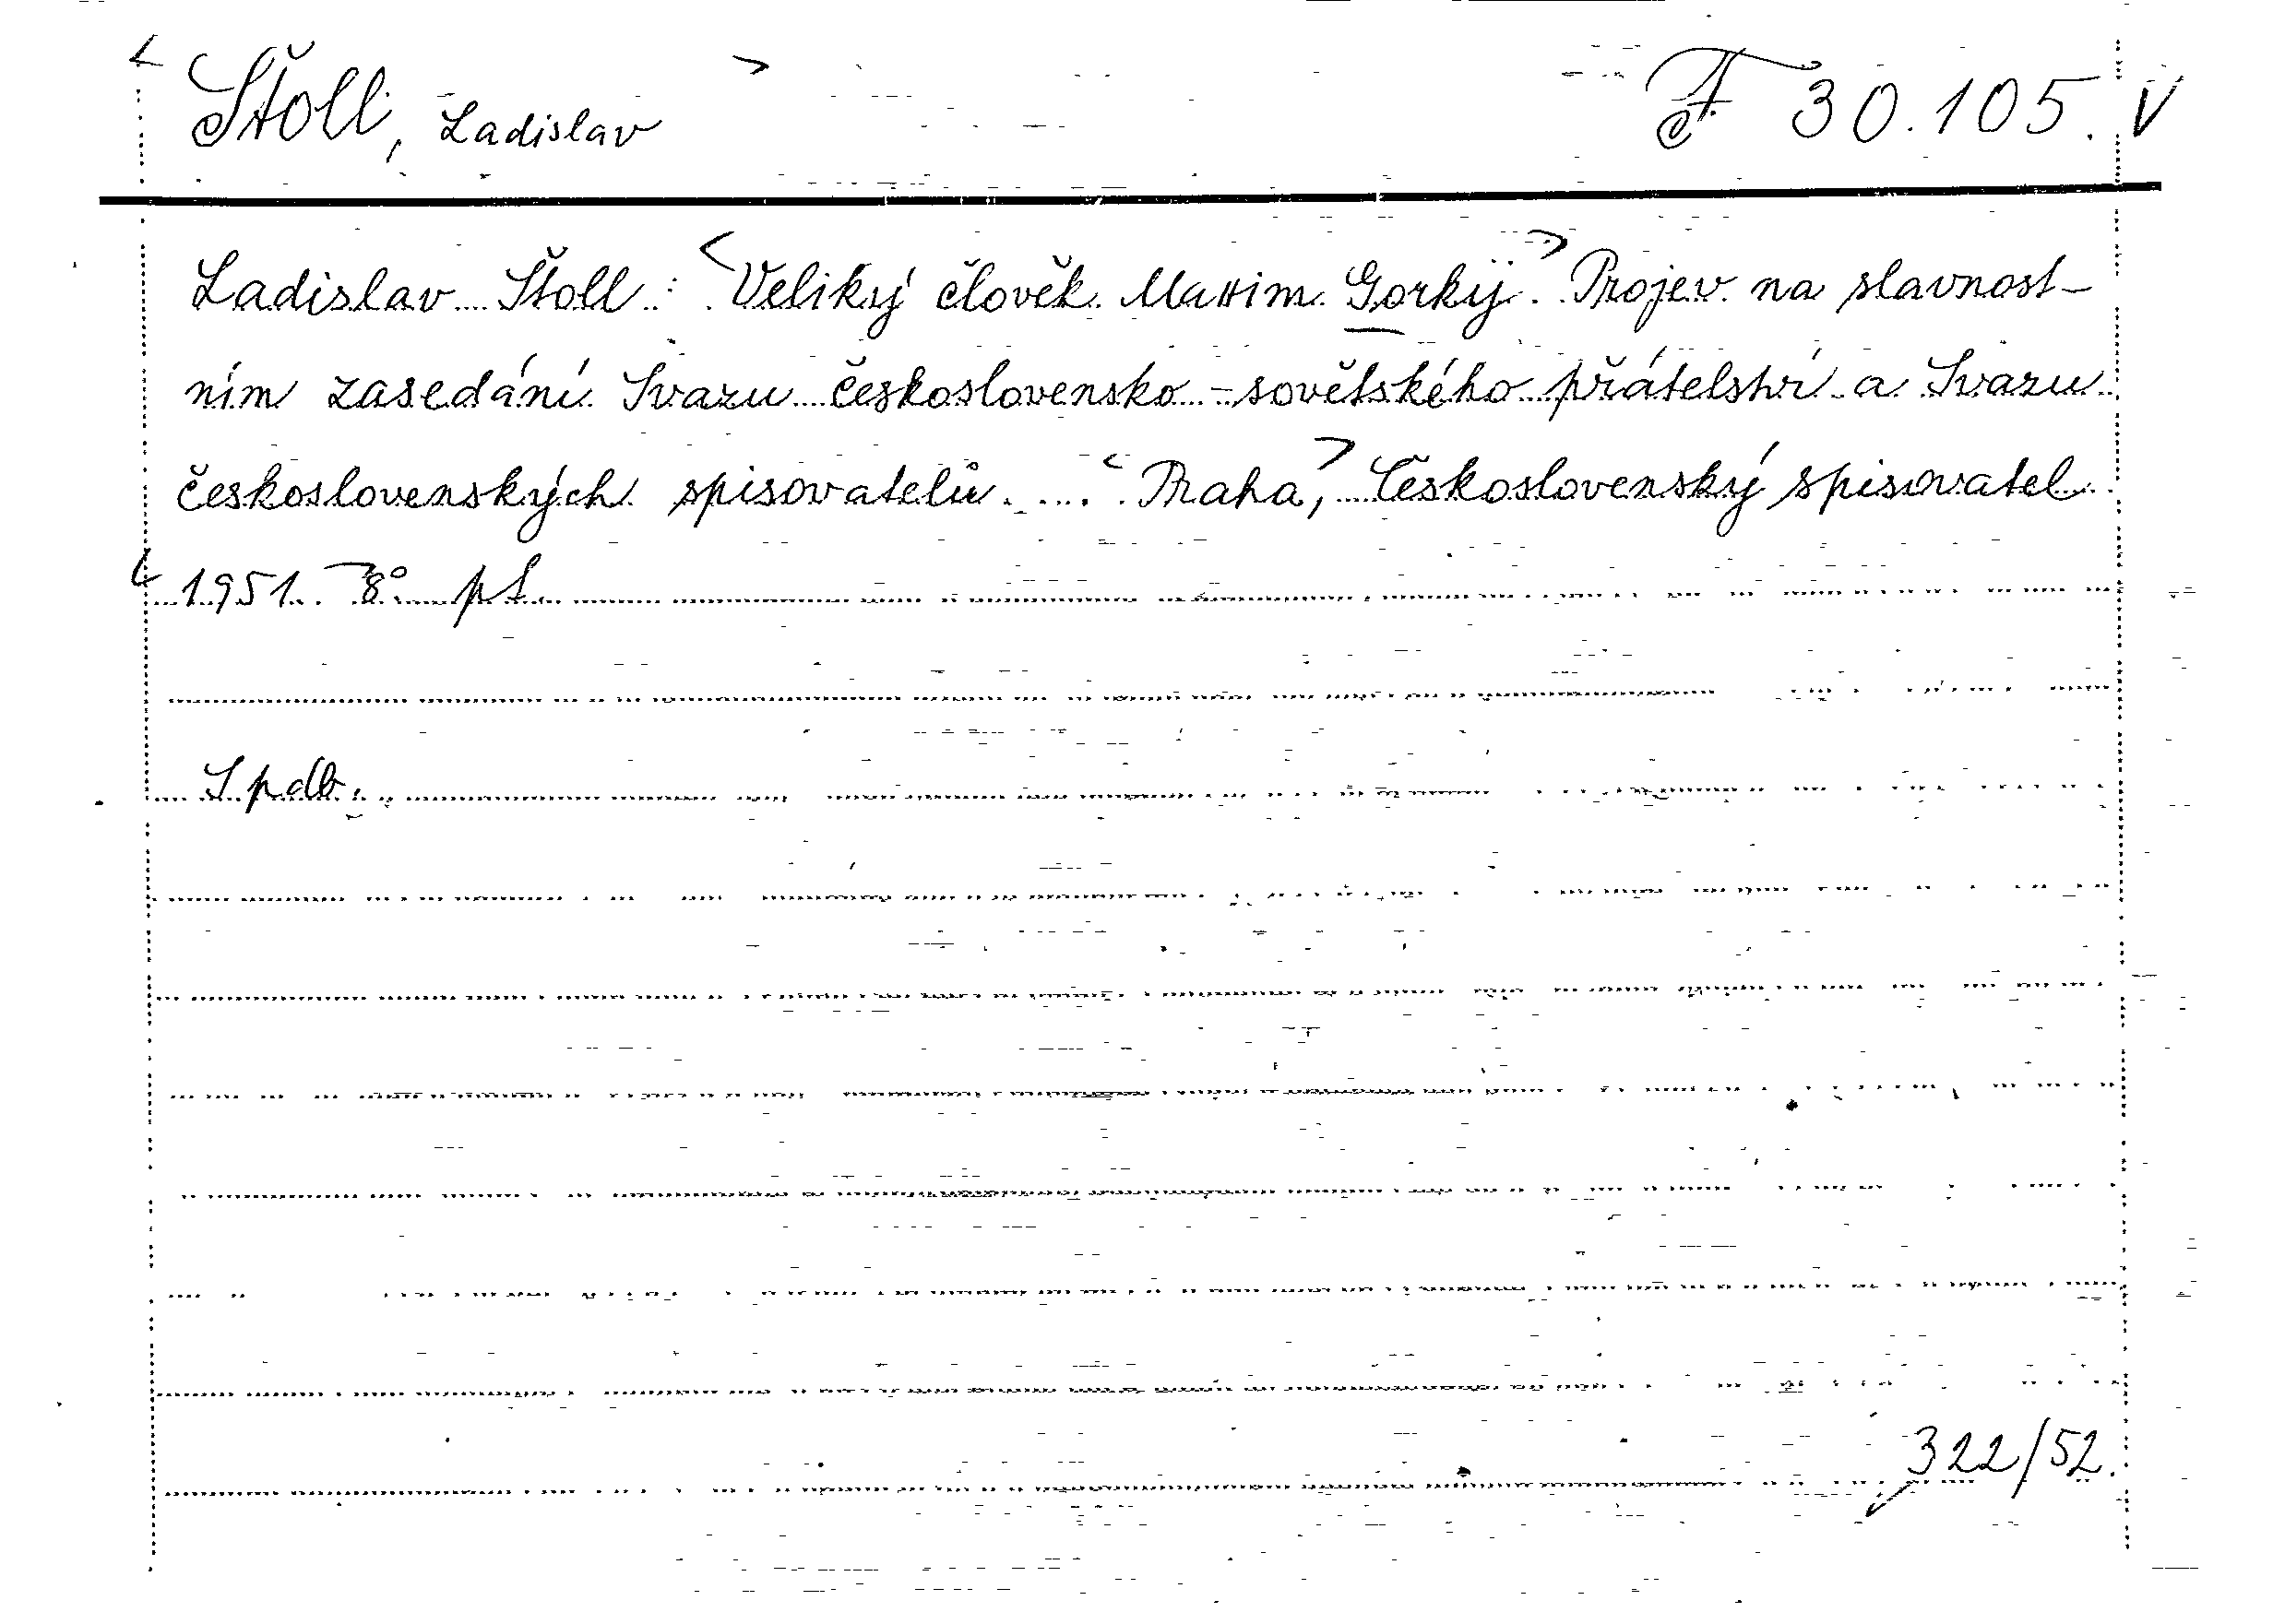 < Štoll, Ladislav > F 30.105. V
Ladislav Štoll: <Veliký člověk Maxim Gorkij.> Projev na slavnost-
ním zasedání Svazu československo-sovětského přátelství a Svazu
československých spisovatelů.... <Praha,> Československý spisovatel
<1951.> 8°. pt.
S pdb.
322/52.